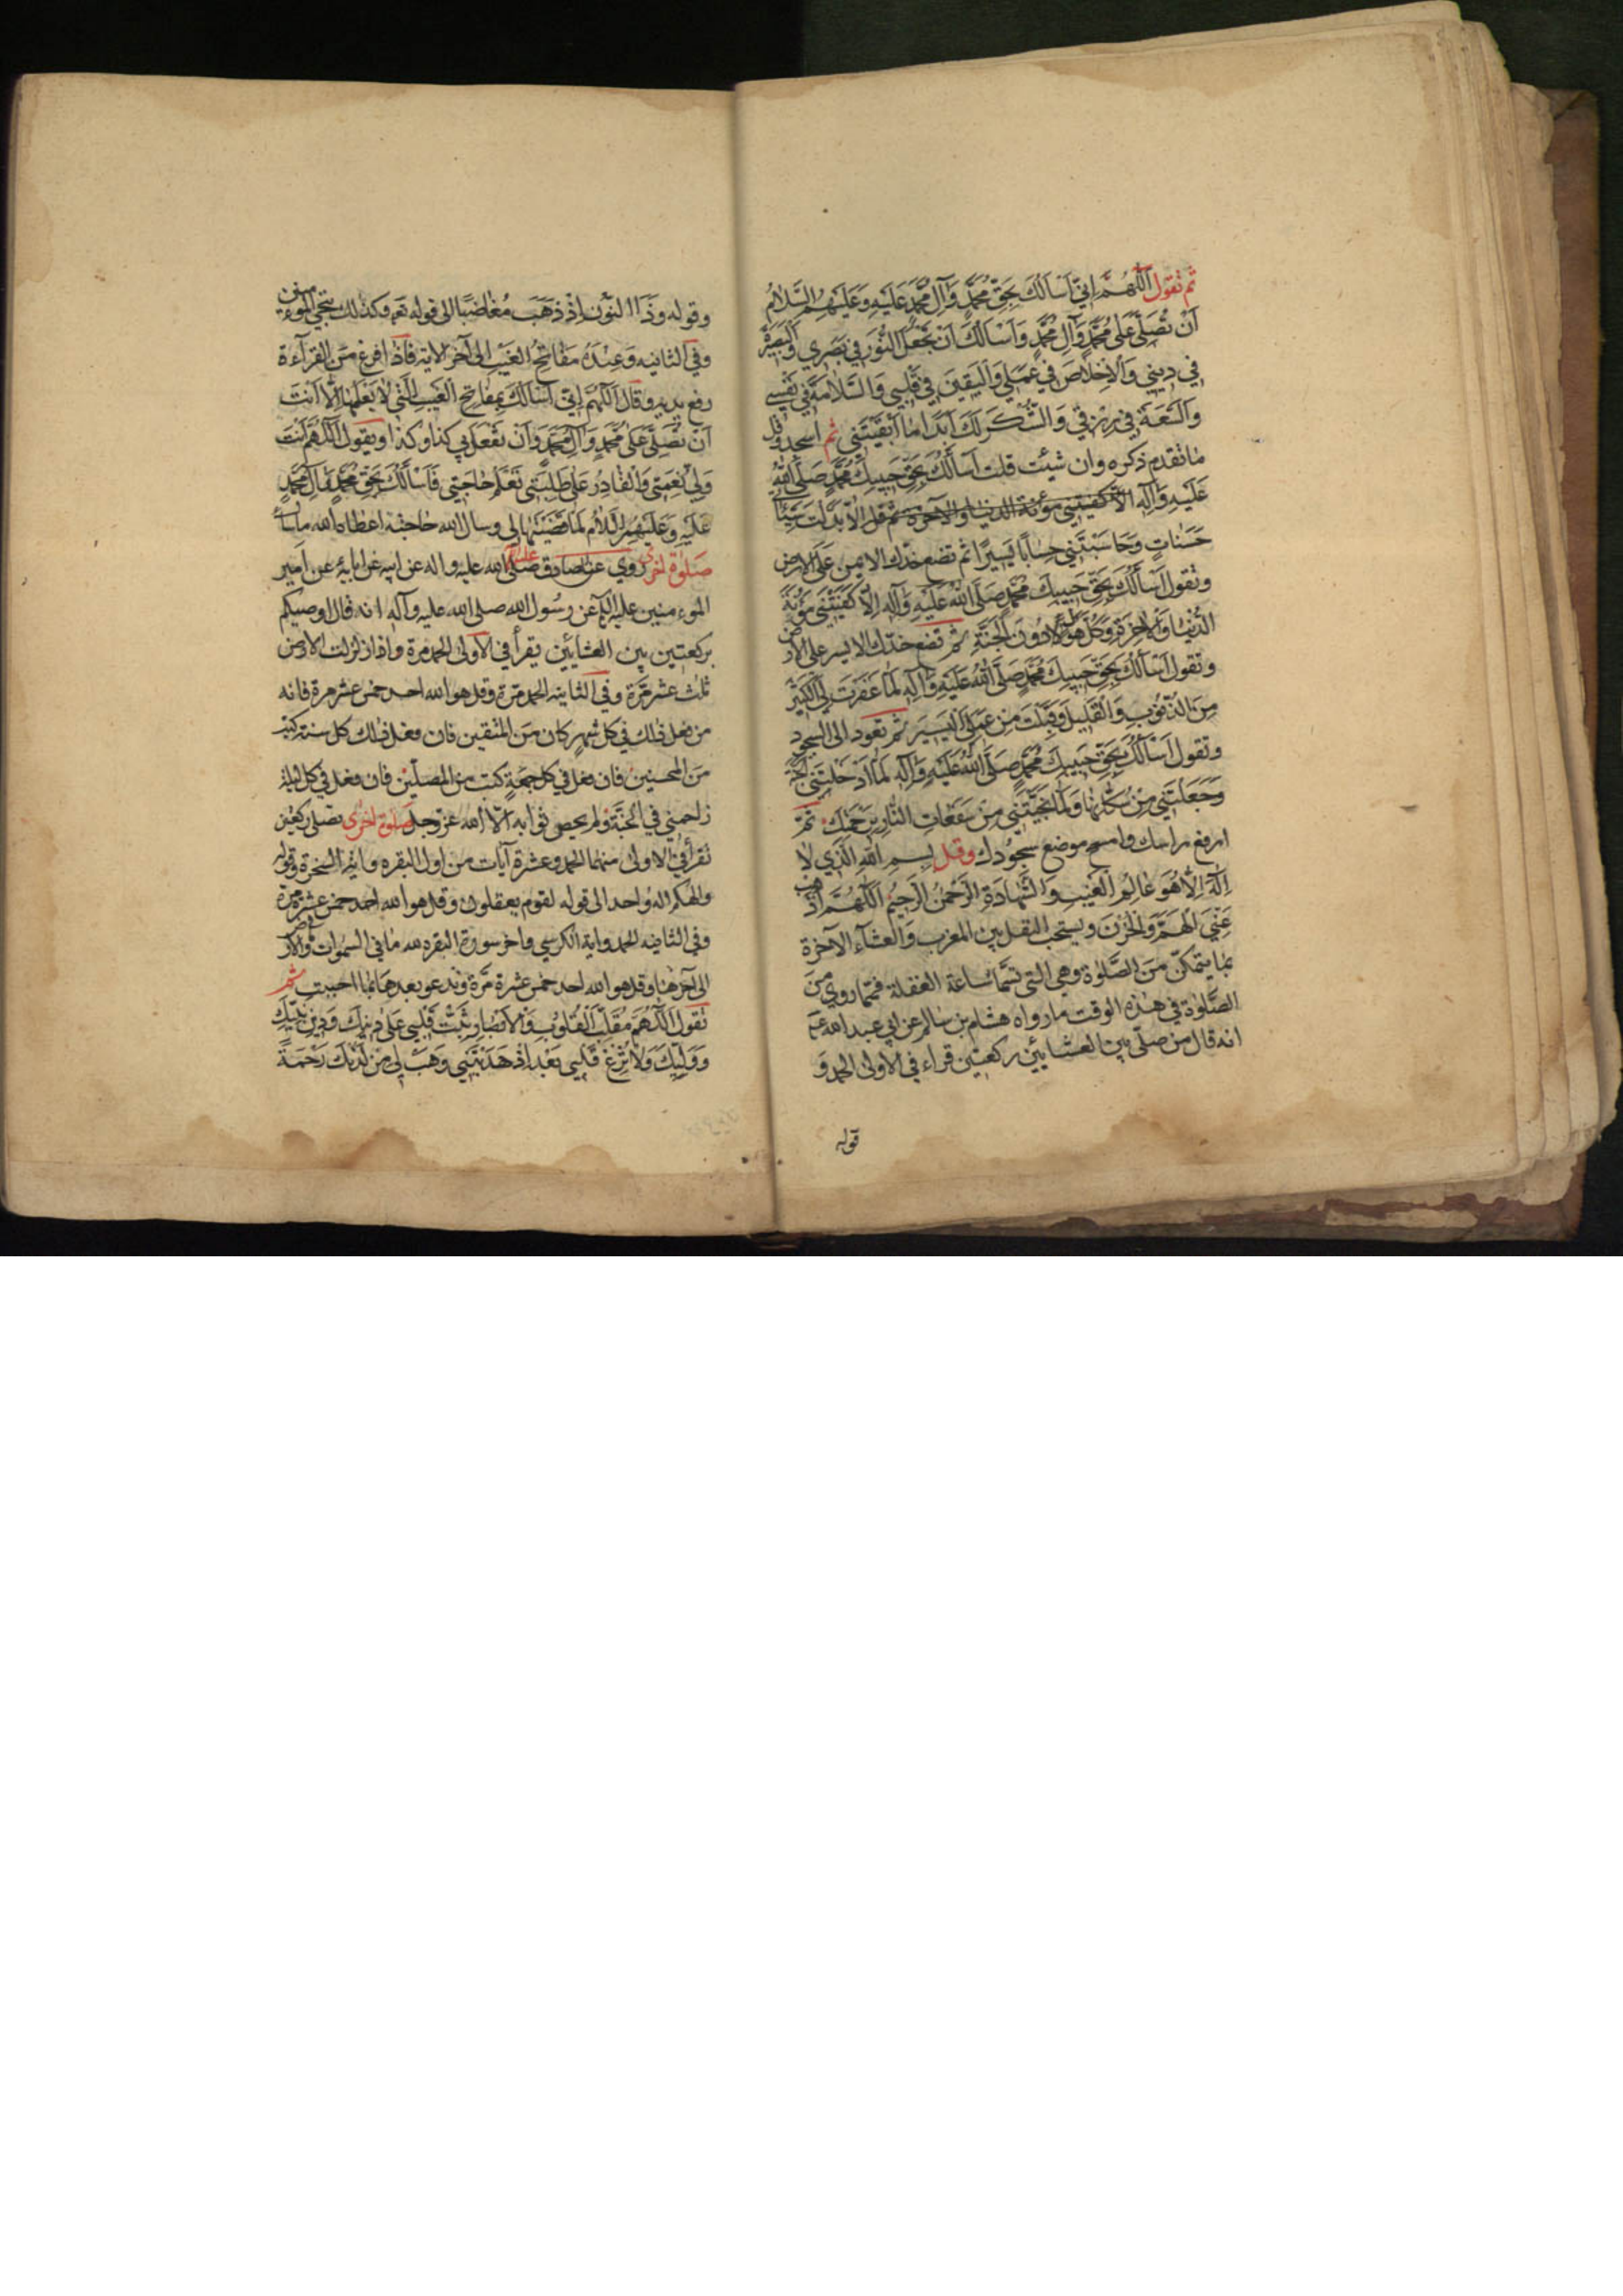 ثم تقول اَللّهُمَّ اِنّي اَسْاَلُكَ بِحَقِّ مُحَمَّدٍ وَآلِ مُحَمَّدٍ عَلَيْهِ وَعَلَيْهِمُ السَّلامُ
اَنْ تُصَلِّيَ عَلى مُحَمَّدٍ وَآلِ مُحَمَّدٍ وَاَسْاَلُكَ اَنْ تَجْعَلَ النُّورَ في بَصَري وَالْبَصيرَةَ
في ديني وَالْاِخْلاصَ في عَمَلي وَالْيَقينَ في قَلْبي وَالسَّلامَةَ في نَفْسي
وَالسَّعَةَ في رِزْقي وَالشُّكْرَ لَكَ اَبَدًا ما اَبْقَيْتَني ثم اسجد وقل
ما تقدم ذكره وان شئت قلت اَسْاَلُكَ بِحَقِّ حَبيبِكَ مُحَمَّدٍ صَلَّى اللهُ
عَلَيْهِ وَآلِهِ الا كفيتني مؤنة الدنيا والآخرة ثم قل الا بَدَّلْتَ سَيِّئاتي
حَسَناتٍ وَحاسَبْتَني حِسابًا يَسيرًا ثم تضع خدّك الايمن على الارض
وتقول اَسْاَلُكَ بِحَقِّ حَبيبِكَ مُحَمَّدٍ صَلَّى اللهُ عَلَيْهِ وَآلِهِ اِلاّ كَفَيْتَني مَؤُنَةَ
الدُّنْيا وَالْاخِرَةِ وَكُلَّ هَوْلٍ دُونَ الْجَنَّةِ ثم تضع خدّك الايسر على الارض
وتقول اَسْاَلُكَ بِحَقِّ حَبيبِكَ مُحَمَّدٍ صَلَّى اللهُ عَلَيْهِ وَآلِهِ لَمّا غَفَرْتَ لِيَ الْكَثيرَ
مِنَ الذُّنُوبِ وَالْقَليلَ وَقَبِلْتَ مِنْ عَمَلِيَ الْيَسيرَ ثم تعود الى السجود
وتقول اَسْاَلُكَ بِحَقِّ حَبيبِكَ مُحَمَّدٍ صَلَّى اللهُ عَلَيْهِ وَآلِهِ لَمّا اَدْخَلْتَنِي الْجَنَّةَ
وَجَعَلْتَني مِنْ سُكّانِها وَلَمّا نَجَّيْتَني مِنْ سَفَعاتِ النّارِ بِرَحْمَتِكَ ثمّ
ارفع راسك وامسح موضع سجودك وقل بِسْمِ اللهِ الَّذي لا
اِلهَ اِلاّ هُوَ عالِمُ الْغَيْبِ وَالشَّهادَةِ الرَّحْمنُ الرَّحيمُ اَللّهُمَّ اَذْهِبْ
عَنِّي الْهَمَّ وَالْحُزْنَ ويستحب التنفل بين المغرب والعشاء الآخرة
بما يتمكن من الصّلوة وهي التي تسمّا ساعة الغفلة فمما روي من
الصّلوة في هذه الوقت ما رواه هشام بن سالم عن ابي عبد الله ع
انه قال من صلّى بين العشايين ركعتين قراء في الاولى الحمد وَ
قوله
وقوله وذَا النون اِذْ ذهَبَ مُغاضِبًا الى قوله تع وكذلك ننجي المؤمنين
وفي الثانيه وَعِنْدَهُ مَفاتِحُ الغَيْبِ الى آخر الايه فاذا فرغ من القراءة
رفع يديه وقال اَللّهُمَّ اِنّي اَسْاَلُكَ بِمَفاتِحِ الْغَيْبِ الَّتي لا يَعْلَمُها اِلاّ اَنْتَ
اَنْ تُصَلِّيَ عَلى مُحَمَّدٍ وَآلِ مُحَمَّدٍ وَاَنْ تَفْعَلَ بي كذا وكذا ويقول اَللّهُمَّ اَنْتَ
وَلِيُّ نِعْمَتي وَالْقادِرُ عَلى طَلِبَتي تَعْلَمُ حاجَتي فَاَسْاَلُكَ بِحَقِّ مُحَمَّدٍ وَآلِ مُحَمَّدٍ
عَلَيْهِ وَعَلَيْهِمُ السَّلامُ لَمّا قَضَيْتَها لي وسال الله حاجته اعطاه الله ما سال
صلوة اخرى روي عن الصادق عليه السلام صلّى الله عليه واله عن ابيه عن ابايه عن امير
المؤمنين عليه السلام عن رسول الله صلى الله عليه وآله انه قال اوصيكم
بركعتين بين العشايين يقرأ في الاولى الحمد مرة واذا زلزلت الارض
ثلث عشر مرّة وفي الثانيه الحمد مرّة وقل هو الله احد خمس عشر مرة فانه
من فعل ذلك في كل شهر كان من المتقين فان فعل ذلك كل سنة كتب
من المحسنين فان فعل في كل جمعةٍ كتب من المصلّين فان فعل في كل ليلة
زاحمني في الجنّة ولم يحص ثوابه الا الله عزّ وجل صلوة اخرى تصلى ركعتين
تقرأ في الاولى منهما الحمد وعشرة آيات من اول البقره واية السخرة وقوله
والهكم اله واحد الى قوله لقوم يعقلون وقل هو الله احد خمس عشرة مرة
وفي الثانيه الحمد واية الكرسي واخر سورة البقره لله ما في السموات والارض
الى آخرها وقل هو الله احد خمس عشرة مرّة وتدعو بعدهما بما احببت ثم
تقول اَللّهُمَّ مُقَلِّبَ الْقُلُوبِ وَالْاَبْصارِ ثَبِّتْ قَلْبي عَلى دينِكَ وَدينِ نَبِيِّكَ
وَوَلِيِّكَ وَلا تُزِغْ قَلْبي بَعْدَ اِذْ هَدَيْتَني وَهَبْ لي مِنْ لَدُنْكَ رَحْمَةً